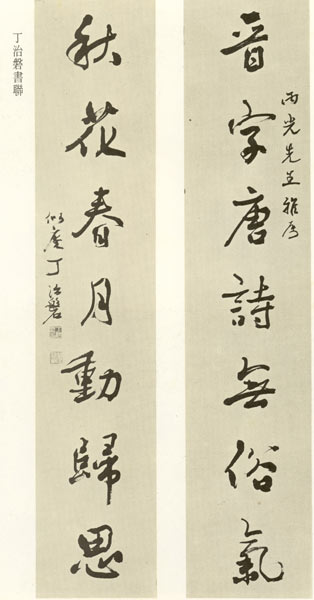 丁治磐書聯
晉字唐詩無俗氣
丙光先生雅属
秋花春月動歸思
似庵丁治磐